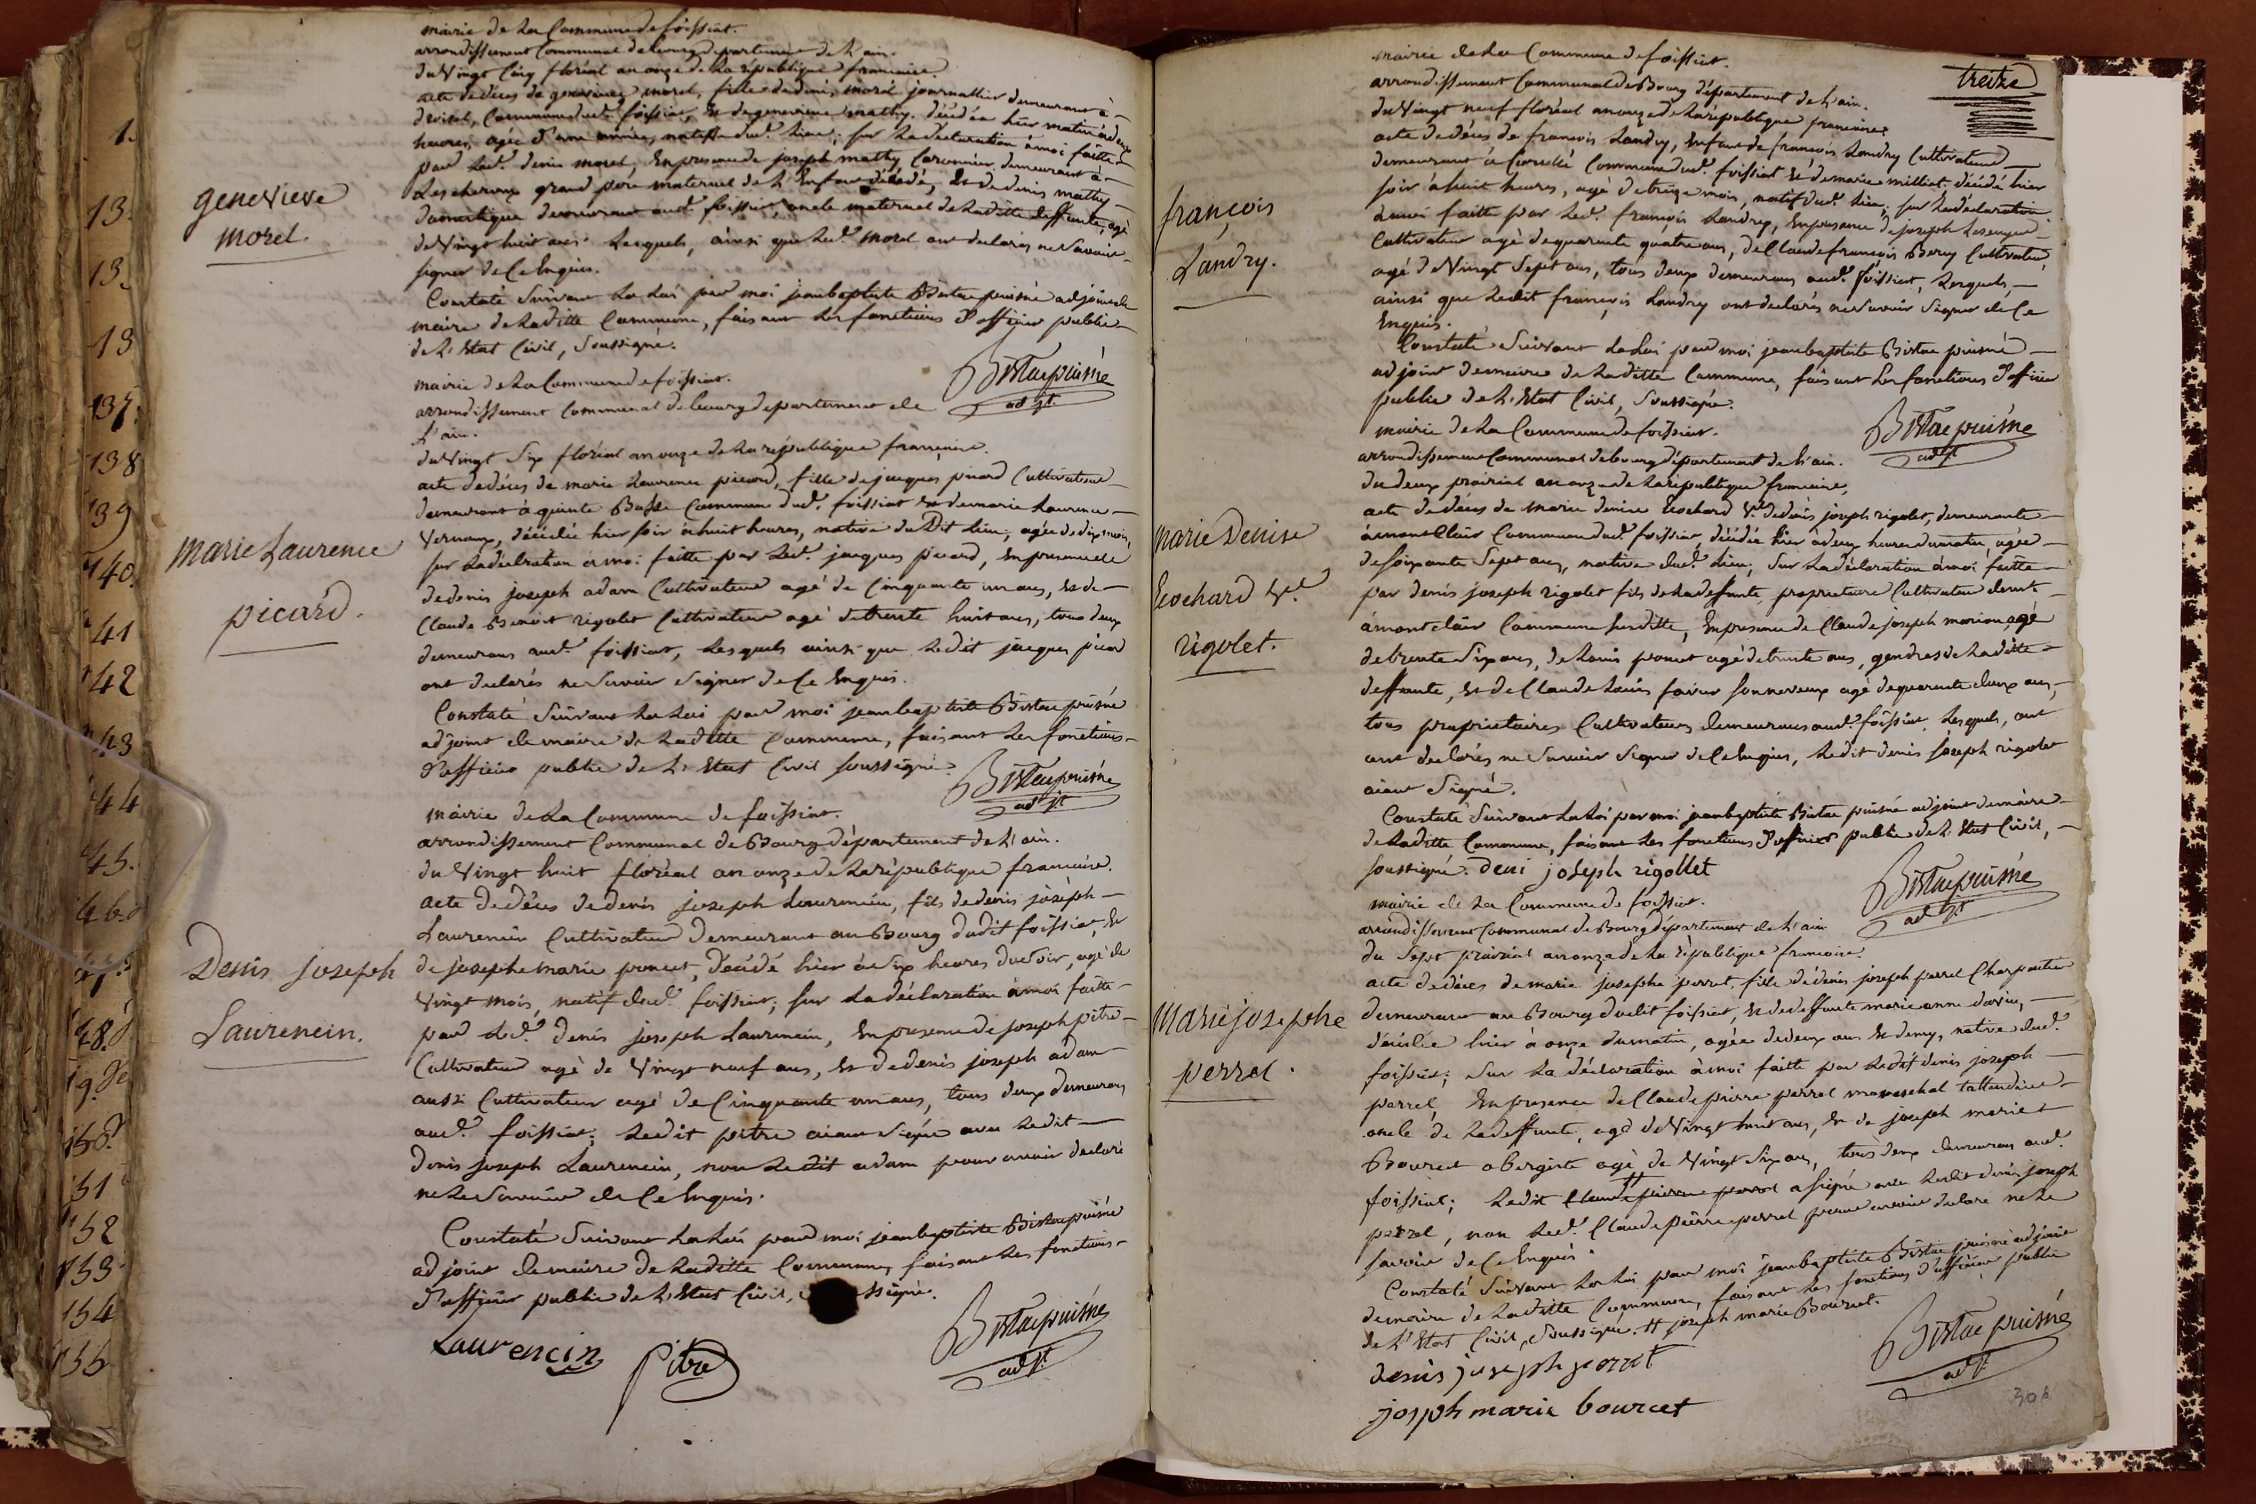 mairie de La Commune de foissiat.
arrondissement Communal de bourg departement de L'ain.
du Vingt Cinq floréal an onze de La république francaise.
acte de décès de genevieve morel, fille de denis morel journallier demeurant à
Commune dud. foissiat, et de genevieve mathy, décédée hier matin à deux
heures, agée d'une année, native dud. Lieu; sur La déclaration à moi faitte
par Led. denis morel, En presence de joseph mathy demeurant à
grand pere maternel de L'Enfant décédé, Et de denis mathy
domestique demeurant aud. foissiat, oncle maternel de Laditte deffunte, agé
de Vingt huit ans. Lesquels, ainsi que Led. morel ont declarés ne Savoir
signer de Ce Enquis.
Constaté Suivant La Loi par moi jean baptiste Bistac puisné adjoint de
maire de Laditte Commune, faisant Les fonctions d'officier public
de L'Etat Civil, Soussigné.
genevieve
morel.
Bistac puisné
adjt.
mairie de La Commune de foissiat.
arrondissement Communal de bourg departement de
L'ain.
du Vingt Six floréal an onze de La république francaise.
acte de décès de marie Laurence picard, fille de jacques picard Cultivateur
demeurant à quinte Basse Commune dud. foissiat et de marie Laurence
Vernoux, décédée hier soir à huit heures, native dudit Lieu, agée de dix mois,
sur La déclaration à moi faitte par Led. jacques picard, En presence de
de denis joseph adam Cultivateur agé de Cinquante un ans, et de
Claude Benoit rigolet Cultivateur agé de trente huit ans, tous deux
demeurans aud. foissiat, Lesquels ainsi que Ledit jacques picard
ont declarés ne Savoir Signer de Ce Enquis.
Constaté Suivant La Loi par moi jean baptiste Bistac puisné
adjoint de maire de Laditte Commune, faisant Les fonctions
d'officier public de L'Etat Civil soussigné.
marie Laurence
picard.
Bistac puisné
adjt
mairie de La Commune de foissiat.
arrondissement Communal de Bourg département de L'ain.
du Vingt huit floréal an onze de La république francaise.
acte de décès de denis joseph Laurencin, fils de denis joseph
Laurencin Cultivateur demeurant au Bourg dudit foissiat, Et
de josephe marie poncet, décédé hier à Six heures du Soir, agé de
Vingt mois, natif dud. foissiat; sur La déclaration à moi faitte
par Led. denis joseph Laurencin, En presence de joseph pitre
Cultivateur agé de Vingt neuf ans, Et de denis joseph adam
aussi Cultivateur agé de Cinquante un ans, tous deux demeurans
aud. foissiat; Ledit pitre aiant Signé avec Ledit
denis joseph Laurencin, non Ledit adam pour avoir declaré
ne Le Savoir de Ce Enquis.
Constaté Suivant La Loi par moi jean baptiste Bistac puisné
adjoint de maire de Laditte Commune, faisant Les fonctions
d'officier public de L'Etat Civil, ssigné.
Denis joseph
Laurencin.
Laurencin
Pitre
Bistac puisné
adjt.
1.
13.
13.
13
137.
138
139
140.
141
142
143
144
145.
146.
47.
48.
150.
151
152
153
154
155
treize
mairie de La Commune de foissiat.
arrondissement Communal de Bourg département de L'ain.
du Vingt neuf floréal an onze de La république francaise
acte de décès de francois Landry, Enfant de francois Landry Cultivateur
demeurant à Commune dud. foissiat Et de marie milliat, décédé hier
soir à huit heures, agé de treize mois, natif dud. Lieu; sur La déclaration
à moi faitte par Led. françois Landry, En presence de joseph
Cultivateur agé de quarente quatre ans, de Claude francois Cultivateur
agé de Vingt Sept ans, tous deux demeurans aud. foissiat, Lesquels,
ainsi que Ledit francois Landry ont declarés ne Savoir Signer de Ce
Enquis.
Constaté Suivant La Loi par moi jean baptiste Bistac puisné
adjoint de maire de Laditte Commune, faisant Les fonctions d'officier
public de L'Etat Civil, Soussigné.
françois
Landry.
Bistac puisné
adjt
mairie de La Commune de foissiat.
arrondissement Communal de bourg département de L'ain.
du deux prairial an onze de La république francaise,
acte de décès de marie denise Ve de denis joseph rigolet, demeurante
à mont Clair Commune dud. foissiat, décédée hier à deux heures du matin, agée
de soixante Sept ans, native dud. Lieu; sur La déclaration à moi faitte
par denis joseph rigolet fils de La deffunte, proprietaire Cultivateur demt.
à mont clair Commune susditte, En presence de Claude joseph morion agé
de trente Six ans, de Louis poncet agé de trente ans, gendres de Laditte
deffunte, et de Claude Louis favier Son neveux agé de quarente deux ans,
tous proprietaires Cultivateurs demeurans aud. foissiat, Lesquels, ont
ont declarés ne Savoir Signer de Ce Enquis, Ledit denis joseph rigolet
aiant Signé.
Constaté Suivant La Loi par moi jean baptiste Bistac puisné adjoint de maire
de Laditte Commune, faisant Les fonctions d'officier public de L'Etat Civil,
soussigné. deni joseph rigollet
marie Denise
Ve.
rigolet.
Bistac puisné
adjt
mairie de La Commune de foissiat.
arrondissement Communal de Bourg département de L'ain
du Sept prairial an onze de La République francaise.
acte de décès de marie josephe perret, fille de denis joseph perrel Charpentier
demeurant au Bourg dudit foissiat, Et de deffunte marie anne
décédée hier à onze du matin, agée de deux ans Et demy, native dud.
foissiat; Sur La déclaration à moi faitte par Ledit denis joseph
perrel, En presence de Claude pierre perrel mareschal tallendier
oncle de La deffunte, agé de Vingt huit ans, et de joseph marie
Bourcet obergiste agé de Vingt Six ans, tous deux demeurans aud.
foissiat; Ledit Claude pierre perrel a signé avec Ledit denis joseph
perrel, non Led. Claude pierre perrel pour avoir declaré ne Le
savoir de Ce Enquis.
Constaté Suivant La Loi par moi jean baptiste Bistac puisné adjoint
de maire de Laditte Commune, faisant Les fonctions d'officier public
de L'Etat Civil, Soussigné. # joseph marie Bourcet.
Marie josephe
perrel.
denis joseph perret
joseph marie bourcet
Bistac puisné
adjt.